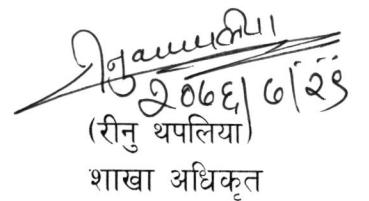 रीनु थपलिया
२०७६/७/२९
(रीनु थपलिया)
शाखा अधिकृत